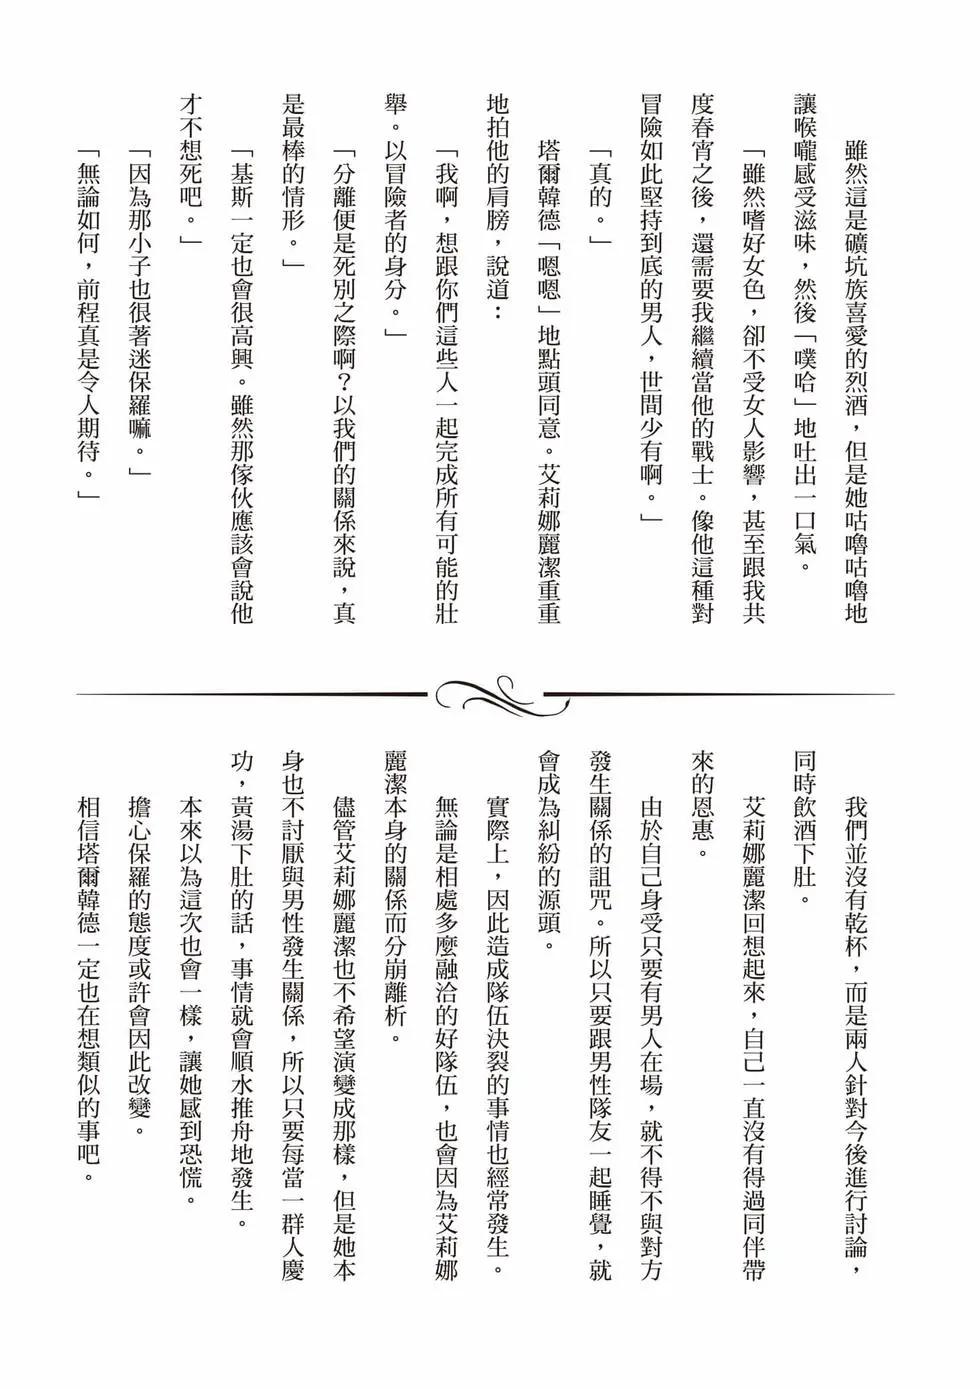 雖然這是礦坑族喜愛的烈酒，但是她咕嚕咕嚕地
讓喉嚨感受滋味，然後「噗哈」地吐出一口氣。
「雖然嗜好女色，卻不受女人影響，甚至跟我共
度春宵之後，還需要我繼續當他的戰士。像他這種對
冒險如此堅持到底的男人，世間少有啊。」
「真的。」
塔爾韓德「嗯嗯」地點頭同意。艾莉娜麗潔重重
地拍他的肩膀，說道：
「我啊，想跟你們這些人一起完成所有可能的壯
舉。以冒險者的身分。」
「分離便是死別之際啊？以我們的關係來說，真
是最棒的情形。」
「基斯一定也會很高興。雖然那傢伙應該會說他
才不想死吧。」
「因為那小子也很著迷保羅嘛。」
「無論如何，前程真是令人期待。」
我們並沒有乾杯，而是兩人針對今後進行討論，
同時飲酒下肚。
艾莉娜麗潔回想起來，自己一直沒有得過同伴帶
來的恩惠。
由於自己身受只要有男人在場，就不得不與對方
發生關係的詛咒。所以只要跟男性隊友一起睡覺，就
會成為糾紛的源頭。
實際上，因此造成隊伍決裂的事情也經常發生。
無論是相處多麼融洽的好隊伍，也會因為艾莉娜
麗潔本身的關係而分崩離析。
儘管艾莉娜麗潔也不希望演變成那樣，但是她本
身也不討厭與男性發生關係，所以只要每當一群人慶
功，黃湯下肚的話，事情就會順水推舟地發生。
本來以為這次也會一樣，讓她感到恐慌。
擔心保羅的態度或許會因此改變。
相信塔爾韓德一定也在想類似的事吧。